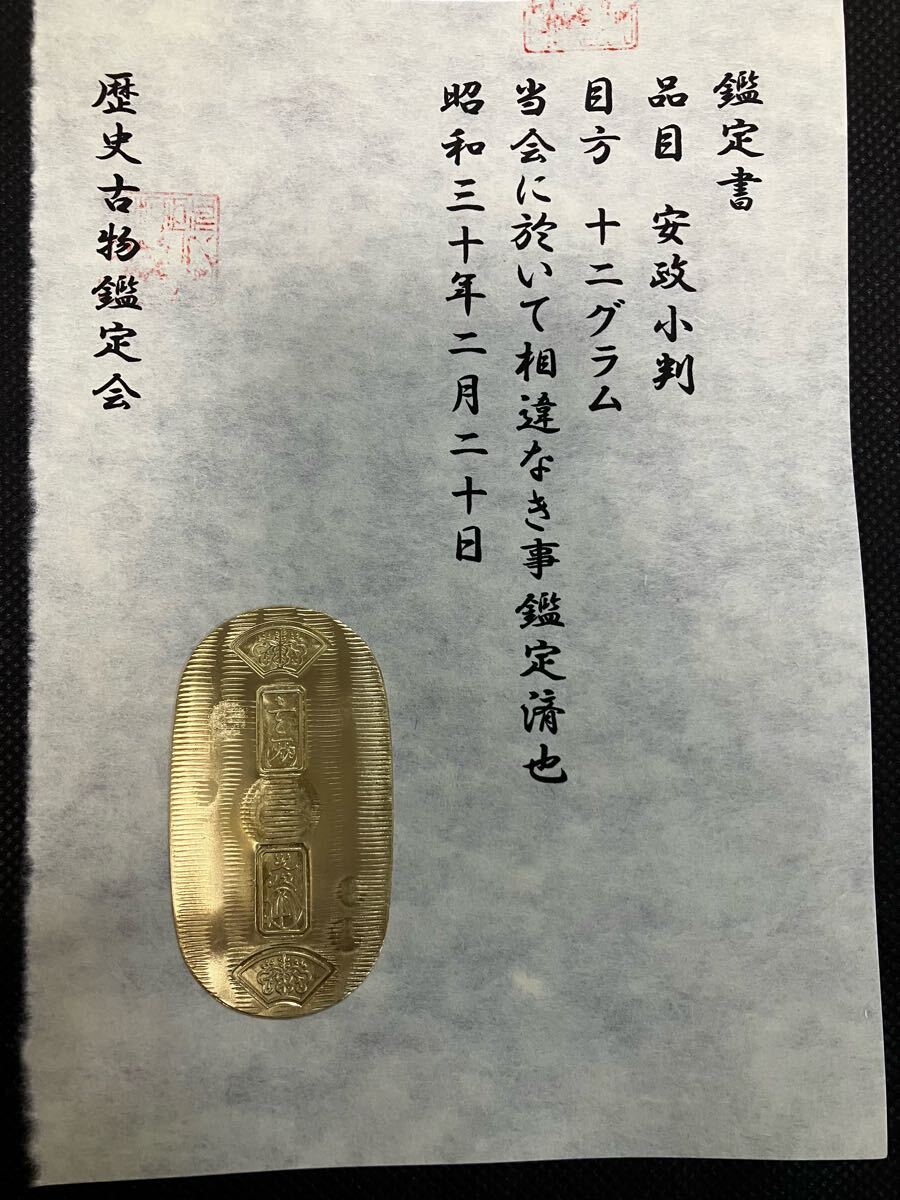 鑑定書
品目 安政小判
目方 十二グラム
当会に於いて相違なき事鑑定済也
昭和三十年二月二十日
歴史古物鑑定会